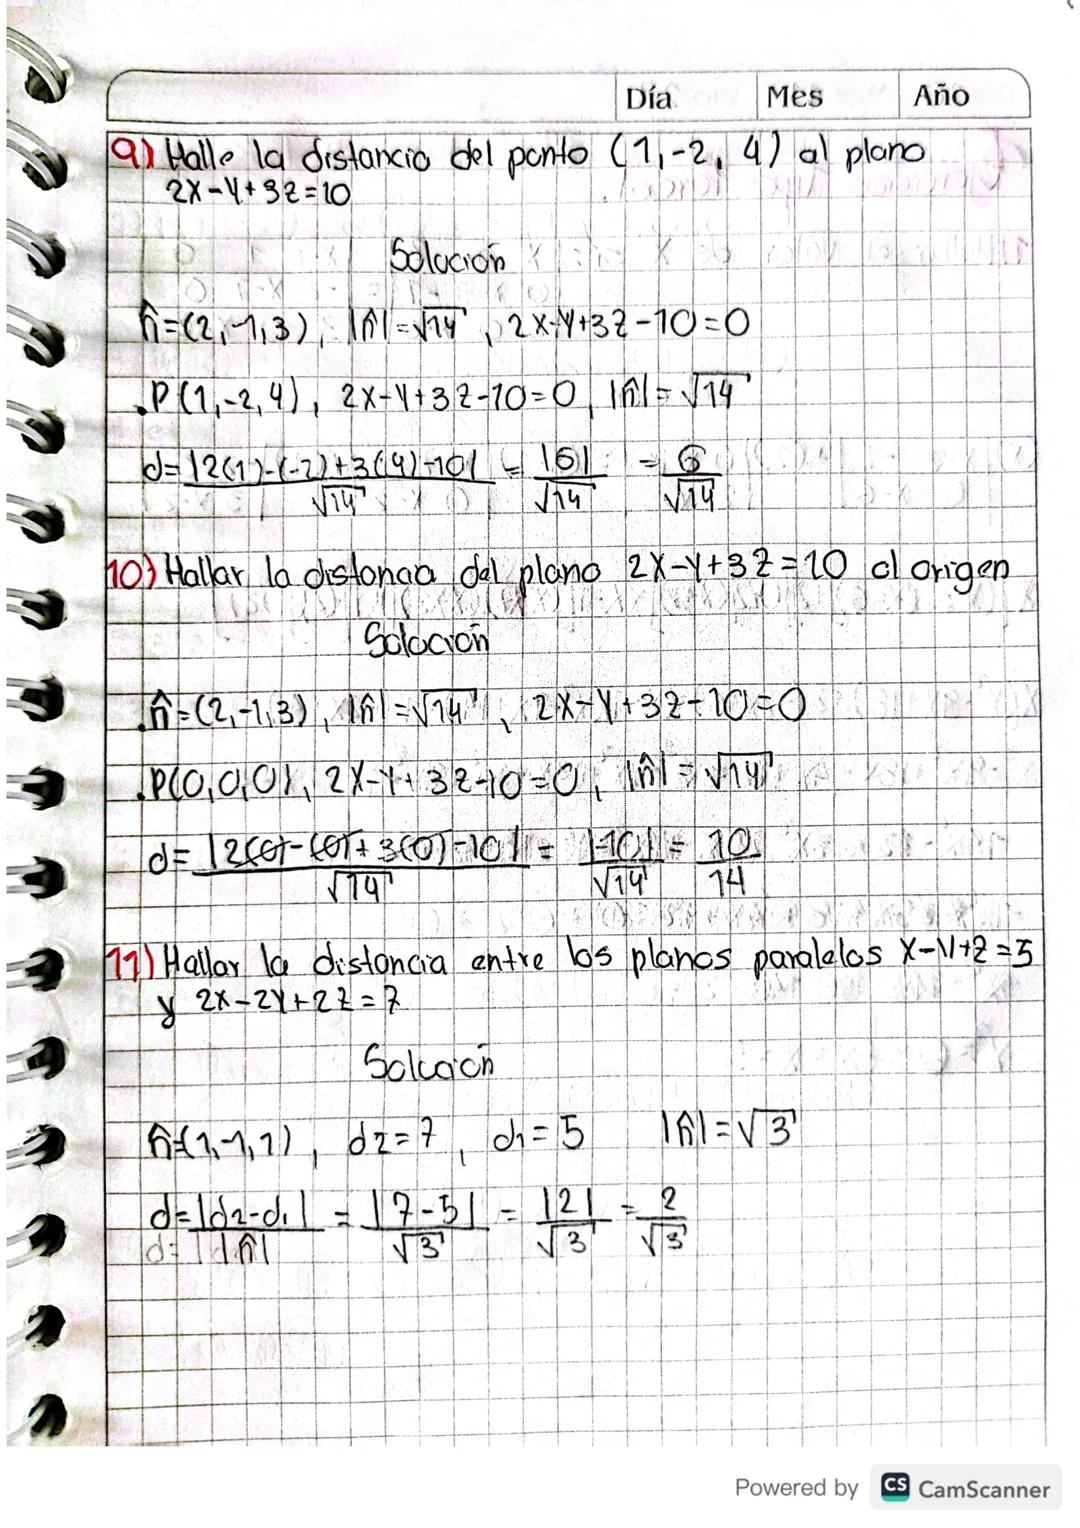 Día Mes Año
9) Halle la distancia del punto (1,-2, 4) al plano
2x-y+3z=10
Solución
n̂=(2,-1,3), |n̂|=√14 , 2x-y+3z-10=0
.P(1,-2,4), 2x-y+3z-10=0, |n̂|=√14
d=|2(1)-(-2)+3(4)-10|/√14 = |6|/√14 = 6/√14
10) Hallar la distancia del plano 2x-y+3z=10 al origen
Solución
.n̂=(2,-1,3), |n̂|=√14 , 2x-y+3z-10=0
.P(0,0,0), 2x-y+3z-10=0, |n̂|=√14
d=|2(0)-(0)+3(0)-10|/√14 = |-10|/√14 = 10/14
11) Hallar la distancia entre los planos paralelos x-y+z=5
y 2x-2y+2z=7
Solución
n̂=(1,-1,1), d2=7, d1=5 |n̂|=√3
d=|d2-d1|/|n̂| = |7-5|/√3 = |2|/√3 = 2/√3
Powered by CS CamScanner